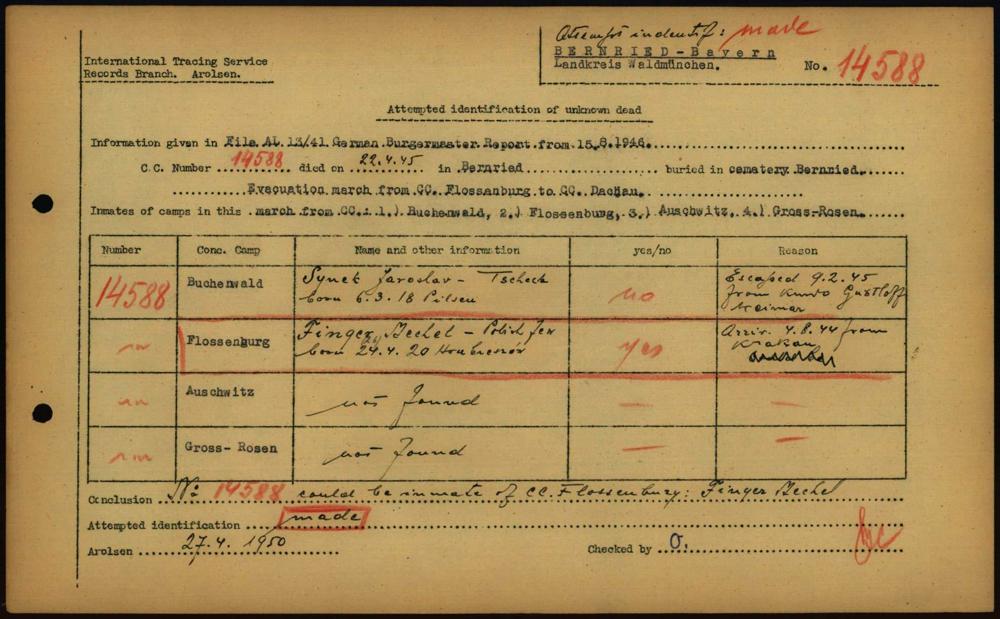 Attempt indentif: made
BERNRIED-Bayern
Landkreis Waldmünchen.
No. 14588
International Tracing Service
Records Branch. Arolsen.
Attempted identification of unknown dead
Information given in File AL 13/41 German Burgermaster Report from 15.8.1946.
C.C. Number 14588 died on 22.4.45 in Bernried buried in cemetery Bernried.
Evacuation march from CC. Flossenburg to CC. Dachau.
Inmates of camps in this march from CC.: 1.) Buchenwald, 2.) Flossenburg, 3.) Auschwitz, 4.) Gross-Rosen.
Number Conc. Camp Name and other information yes/no Reason
14588 Buchenwald Synek Jaroslav - Tscheck born 6.3.18 Pilsen no Escaped 9.2.45 from Gustloff Weimar
Flossenburg Finger Mechel - Polish Jew born 24.4.20 yes Arriv. 4.8.44 from Krakau
Auschwitz not found —
Gross-Rosen not found —
Conclusion No: 14588 could be inmate of CC. Flossenburg: Finger Mechel
Attempted identification made
Arolsen 27.4.1950 Checked by O.